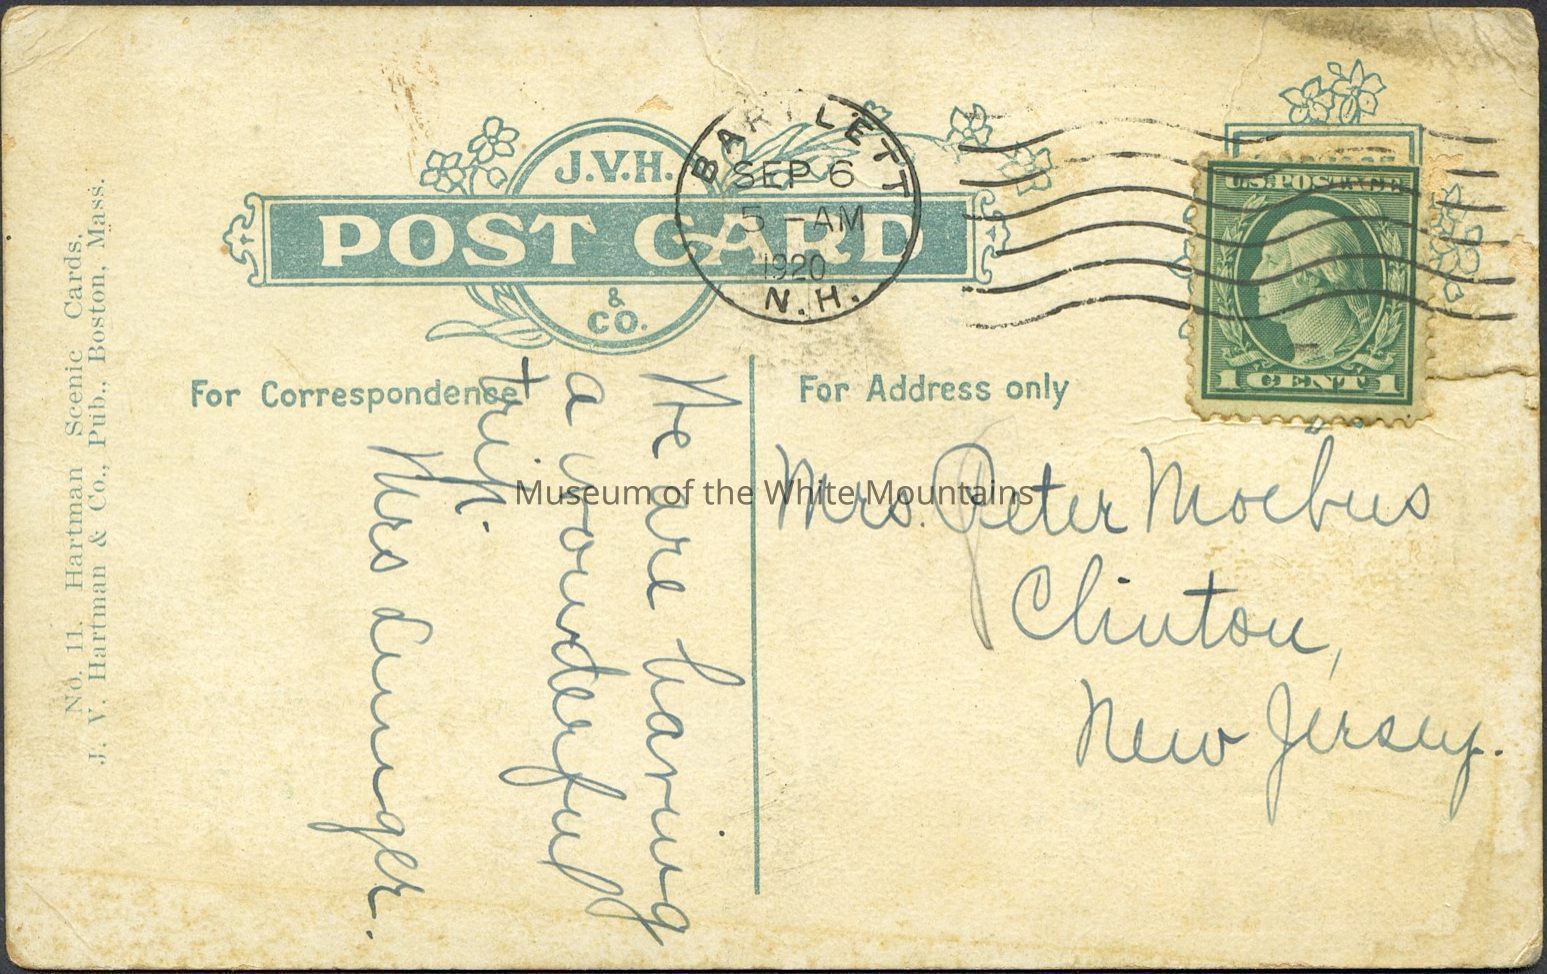 No. 11. Hartman Scenic Cards,
J. V. Hartman & Co., Pub., Boston, Mass.
J.V.H.
POST CARD
&
CO.
BARTLETT
SEP 6
5-AM
1920
N.H.
U.S. POSTAGE
1 CENT 1
For Correspondence
For Address only
We are having
a wonderful
trip.
Mrs
Mrs. Peter Moebus
Clinton,
New Jersey.
Museum of the White Mountains